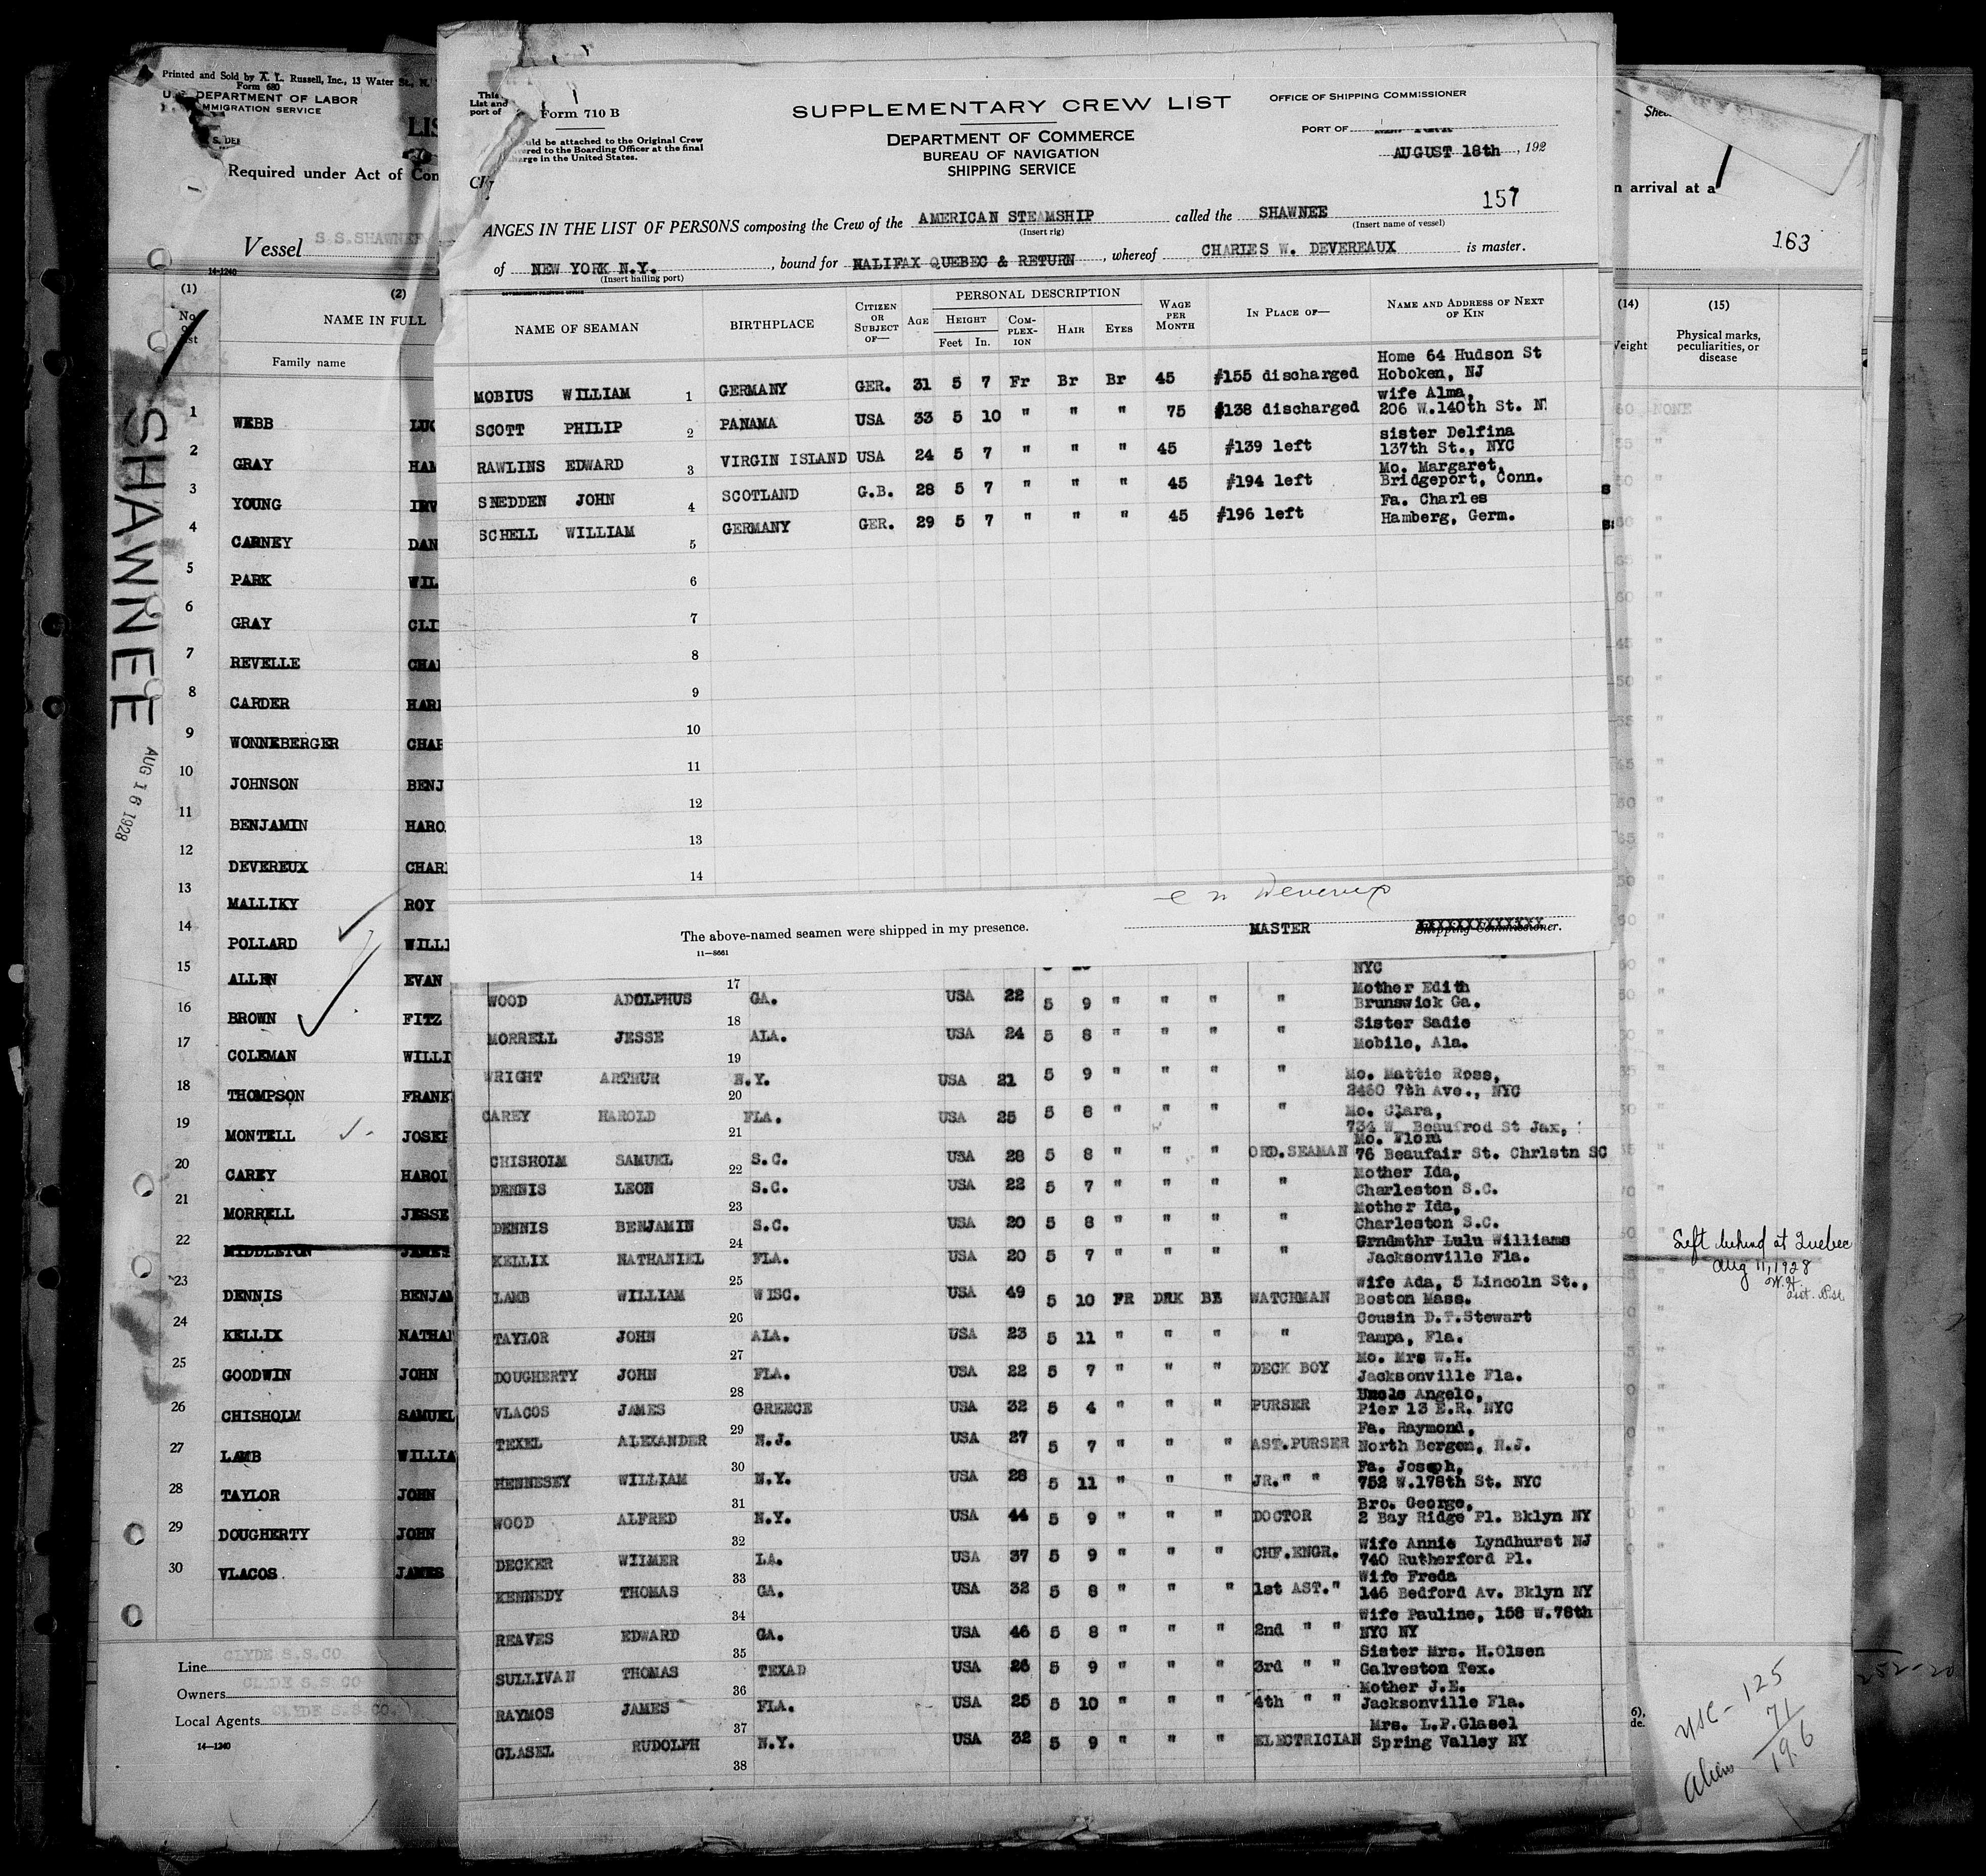 Printed and Sold by A. L. Russell, Inc., 13 Water St., N.
Form 680
U.S. DEPARTMENT OF LABOR
IMMIGRATION SERVICE
LIS
Required under Act of Con
Vessel S.S.SHAWNEE
14-1240
(1) (2)
NAME IN FULL
Family name
1 WEBB LUK
2 GRAY HAM
3 YOUNG IRV
4 CARNEY DAN
5 PARK WIL
6 GRAY CLI
7 REVELLE CHA
8 CARDER HAR
9 WONNEBERGER CHAR
10 JOHNSON BENJ
11 BENJAMIN HARO
12 DEVEREUX CHAR
13 MALLIKY ROY
14 POLLARD WILLI
15 ALLEN EVAN
16 BROWN FITZ
17 COLEMAN WILLI
18 THOMPSON FRANK
19 MONTELL JOSEP
20 CAREY HAROL
21 MORRELL JESSE
22 MIDDLETON JAMES
23 DENNIS BENJAM
24 KELLIX NATHAN
25 GOODWIN JOHN
26 CHISHOLM SAMUEL
27 LAMB WILLIA
28 TAYLOR JOHN
29 DOUGHERTY JOHN
30 VLACOS JAMES
Line CLYDE S.S.CO
Owners CLYDE S.S CO
Local Agents CLYDE S.S.CO.
14—1240
SHAWNEE
AUG 16 1928
This
List and
port of
Form 710 B
ould be attached to the Original Crew
ered to the Boarding Officer at the final
harge in the United States.
SUPPLEMENTARY CREW LIST
DEPARTMENT OF COMMERCE
BUREAU OF NAVIGATION
SHIPPING SERVICE
OFFICE OF SHIPPING COMMISSIONER
PORT OF NEW YORK
AUGUST 18th, 192
157
ANGES IN THE LIST OF PERSONS composing the Crew of the AMERICAN STEAMSHIP called the SHAWNEE
(Insert rig) (Insert name of vessel)
of NEW YORK N.Y., bound for HALIFAX QUEBEC & RETURN, whereof CHARLES W. DEVEREAUX is master.
(Insert hailing port)
GOVERNMENT PRINTING OFFICE
NAME OF SEAMAN BIRTHPLACE CITIZEN OR SUBJECT OF— AGE PERSONAL DESCRIPTION HEIGHT Feet In. COMPLEXION HAIR EYES WAGE PER MONTH IN PLACE OF— NAME AND ADDRESS OF NEXT OF KIN
Home 64 Hudson St
MOBIUS WILLIAM 1 GERMANY GER. 31 5 7 Fr Br Br 45 #155 discharged Hoboken, NJ
wife Alma,
SCOTT PHILIP 2 PANAMA USA 33 5 10 " " " 75 #138 discharged 206 W.140th St. N
sister Delfina
RAWLINS EDWARD 3 VIRGIN ISLAND USA 24 5 7 " " " 45 #139 left 137th St., NYC
Mo. Margaret,
SNEDDEN JOHN 4 SCOTLAND G.B. 28 5 7 " " " 45 #194 left Bridgeport, Conn.
Fa. Charles
SCHELL WILLIAM 5 GERMANY GER. 29 5 7 " " " 45 #196 left Hamberg, Germ.
6
7
8
9
10
11
12
13
14
The above-named seamen were shipped in my presence.
MASTER XXXXXXXXXXXXX Shipping Commissioner.
11—8661
NYC
17
Mother Edith
WOOD ADOLPHUS GA. USA 22 5 9 " " " " Brunswick Ga.
18
Sister Sadie
MORRELL JESSE ALA. USA 24 5 8 " " " " Mobile, Ala.
19
WRIGHT ARTHUR N.Y. USA 21 5 9 " " " " Mo. Mattie Ross,
2460 7th Ave., NYC
20
CAREY HAROLD FLA. USA 25 5 8 " " " " Mo. Clara,
734 W Beaufrod St Jax,
21
Mo. Flora
CHISHOLM SAMUEL S.C. USA 28 5 8 " " " ORD.SEAMAN 76 Beaufair St. Chrlstn SC
22
Mother Ida,
DENNIS LEON S.C. USA 22 5 7 " " " " Charleston S.C.
23
Mother Ida,
DENNIS BENJAMIN S.C. USA 20 5 8 " " " " Charleston S.C.
24
Grndmthr Lulu Williams
KELLIX NATHANIEL FLA. USA 20 5 7 " " " " Jacksonville Fla.
25
Wife Ada, 5 Lincoln St.,
LAMB WILLIAM WISC. USA 49 5 10 FR DRK BL WATCHMAN Boston Mass.
26
Cousin D.T.Stewart
TAYLOR JOHN ALA. USA 23 5 11 " " " " Tampa, Fla.
27
Mo. Mrs W.H.
DOUGHERTY JOHN FLA. USA 22 5 7 " " " DECK BOY Jacksonville Fla.
28
Uncle Angelo,
VLACOS JAMES GREECE USA 32 5 4 " " " PURSER Pier 13 E.R. NYC
29
Fa. Raymond,
TEXEL ALEXANDER N.J. USA 27 5 7 " " " AST.PURSER North Bergen, N.J.
30
Fa. Joseph,
HENNESEY WILLIAM N.Y. USA 28 5 11 " " " JR." " 752 W.178th St. NYC
31
Bro. George,
WOOD ALFRED N.Y. USA 44 5 9 " " " DOCTOR 2 Bay Ridge Pl. Bklyn NY
32
Wife Annie Lyndhurst NJ
DECKER WILMER LA. USA 37 5 9 " " " CHF.ENGR. 740 Rutherford Pl.
33
Wife Freda
KENNEDY THOMAS GA. USA 32 5 8 " " " 1st AST." 146 Bedford Av. Bklyn NY
34
Wife Pauline, 158 W.78th
REAVES EDWARD GA. USA 46 5 8 " " " 2nd " " NYC NY
35
Sister Mrs. H.Olsen
SULLIVAN THOMAS TEXAD USA 26 5 9 " " " 3rd " " Galveston Tex.
36
Mother J.E.
RAYMOS JAMES FLA. USA 25 5 10 " " " 4th " " Jacksonville Fla.
37
Mrs. L.P.Glasel
GLASEL RUDOLPH N.Y. USA 32 5 9 " " " ELECTRICIAN Spring Valley NY
38
n arrival at a
163
(14) (15)
Weight Physical marks, peculiarities, or disease
NONE
Left behind at Quebec
Aug 11, 1928
USC - 125
Aliens 71
196
252-20